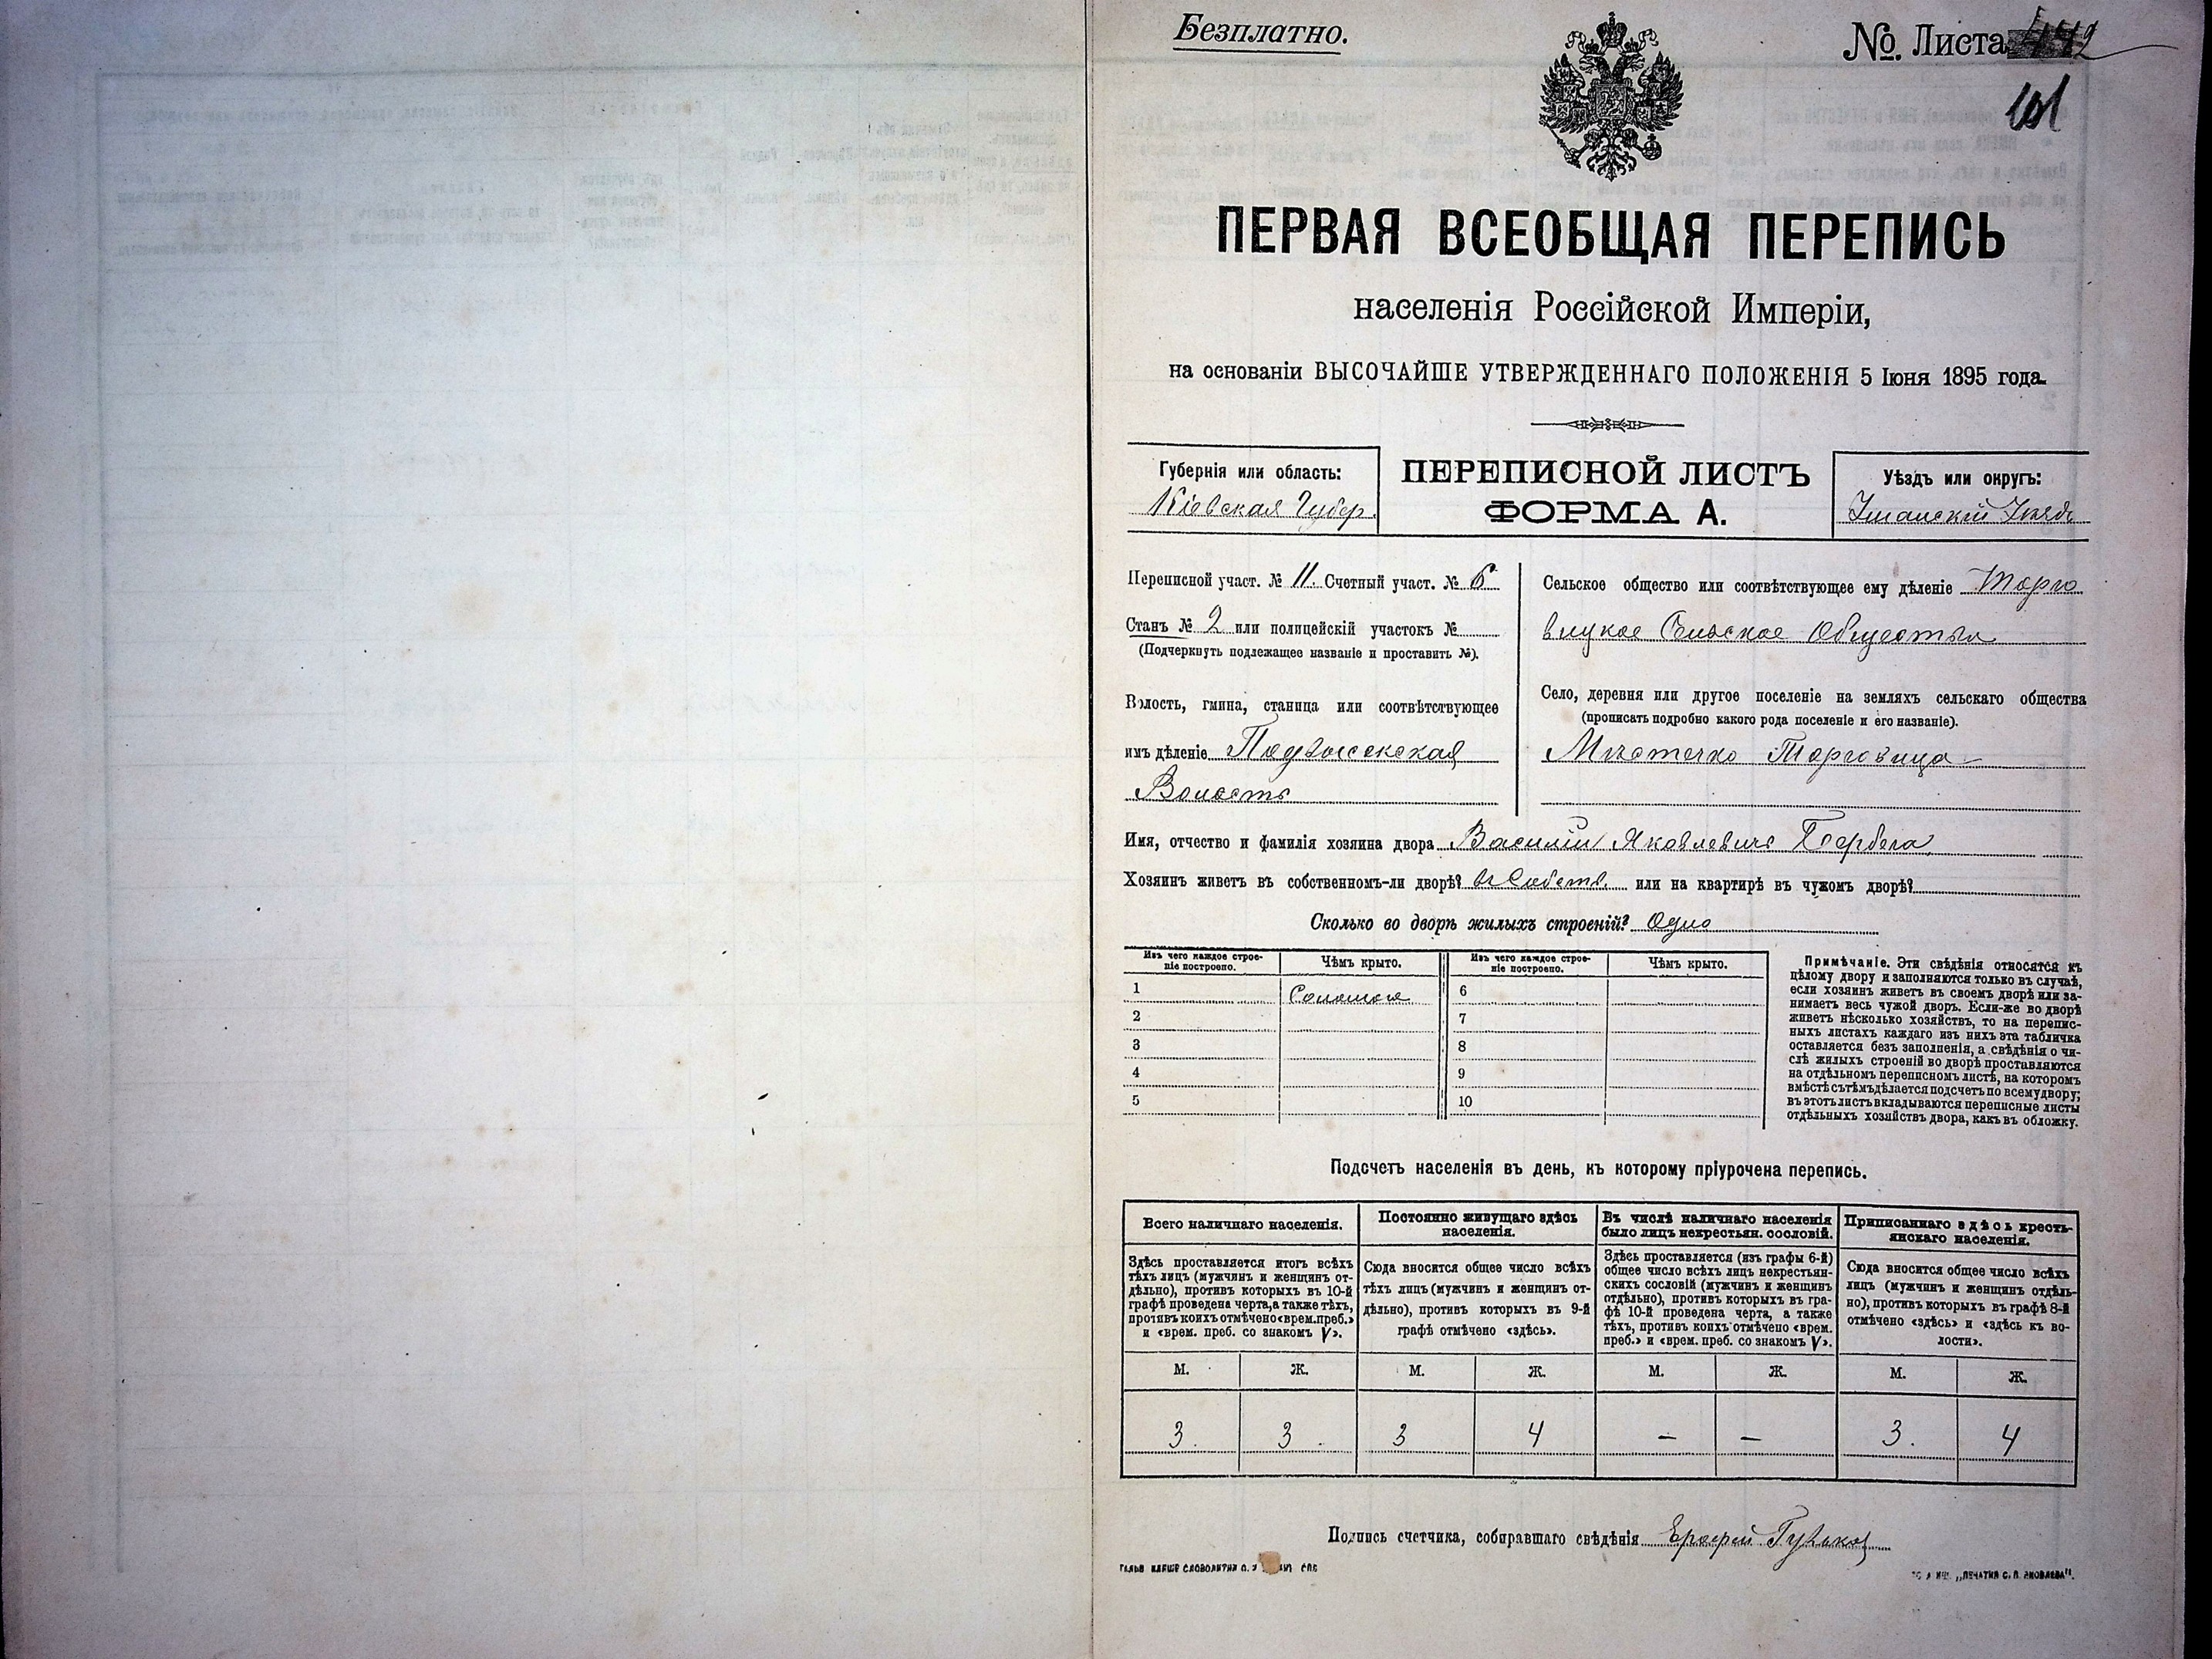 Безплатно.
№. Листа
101
ПЕРВАЯ ВСЕОБЩАЯ ПЕРЕПИСЬ
населенія Россійской Имперіи,
на основаніи ВЫСОЧАЙШЕ УТВЕРЖДЕННАГО ПОЛОЖЕНІЯ 5 Іюня 1895 года.
Губернія или область:
Кіевская Губер.
ПЕРЕПИСНОЙ ЛИСТЪ
ФОРМА А.
Уѣздъ или округъ:
Уманскій Уѣздъ
Переписной участ. № 11. Счетный участ. № 6
Станъ № 2 или полицейскій участокъ №
(Подчеркнуть подлежащее названіе и проставить №).
Волость, гмина, станица или соотвѣтствующее
имъ дѣленіе Подвысокская
Волость
Сельское общество или соотвѣтствующее ему дѣленіе Торго
вицкое Сельское Общество
Село, деревня или другое поселеніе на земляхъ сельскаго общества
(прописать подробно какого рода поселеніе и его названіе).
Мѣстечко Торговица
Имя, отчество и фамилія хозяина двора Василій Яковлевичъ
Хозяинъ живетъ въ собственномъ-ли дворѣ? въ Собств. или на квартирѣ въ чужомъ дворѣ?
Сколько во дворѣ жилыхъ строеній? Одно
Изъ чего каждое строе-
ніе построено.
Чѣмъ крыто.
Изъ чего каждое строе-
ніе построено.
Чѣмъ крыто.
1 Соломою 6
2 7
3 8
4 9
5 10
Примѣчаніе. Эти свѣдѣнія относятся къ
цѣлому двору и заполняются только въ случаѣ,
если хозяинъ живетъ въ своемъ дворѣ или за-
нимаетъ весь чужой дворъ. Если-же во дворѣ
живетъ нѣсколько хозяйствъ, то на перепис-
ныхъ листахъ каждаго изъ нихъ эта табличка
оставляется безъ заполненія, а свѣдѣнія о чи-
слѣ жилыхъ строеній во дворѣ проставляются
на отдѣльномъ переписномъ листѣ, на которомъ
вмѣстѣ съ тѣмъ дѣлается подсчетъ по всему двору;
въ этотъ листъ вкладываются переписные листы
отдѣльныхъ хозяйствъ двора, какъ въ обложку.
Подсчетъ населенія въ день, къ которому пріурочена перепись.
Всего наличнаго населенія.
Здѣсь проставляется итогъ всѣхъ
тѣхъ лицъ (мужчинъ и женщинъ от-
дѣльно), противъ которыхъ въ 10-й
графѣ проведена черта, а также тѣхъ,
противъ коихъ отмѣчено «врем. преб.»
и «врем. преб. со знакомъ V».
Постоянно живущаго здѣсь
населенія.
Сюда вносится общее число всѣхъ
тѣхъ лицъ (мужчинъ и женщинъ от-
дѣльно), противъ которыхъ въ 9-й
графѣ отмѣчено «здѣсь».
Въ числѣ наличнаго населенія
было лицъ некрестьян. сословій.
Здѣсь проставляется (изъ графы 6-й)
общее число всѣхъ лицъ некрестьян-
скихъ сословій (мужчинъ и женщинъ
отдѣльно), противъ которыхъ въ гра-
фѣ 10-й проведена черта, а также
тѣхъ, противъ коихъ отмѣчено «врем.
преб.» и «врем. преб. со знакомъ V».
Приписаннаго здѣсь кресть-
янскаго населенія.
Сюда вносится общее число всѣхъ
лицъ (мужчинъ и женщинъ отдѣль-
но), противъ которыхъ въ графѣ 8-й
отмѣчено «здѣсь» и «здѣсь къ во-
лости».
М. Ж. М. Ж. М. Ж. М. Ж.
3. 3. 3 4 — — 3. 4
Подпись счетчика, собиравшаго свѣдѣнія Ерофей